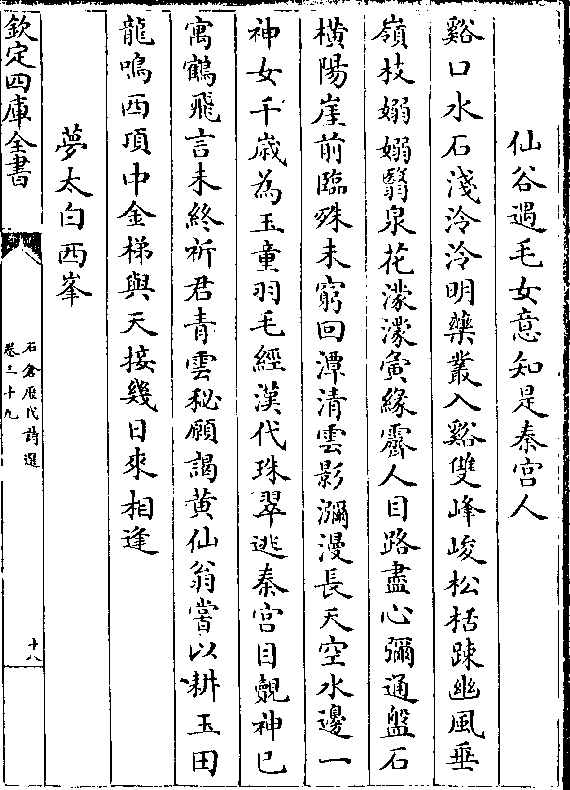 仙谷遇毛女意知是秦宫人
谿口水石淺泠泠明藥叢入谿雙峰峻松栝踈幽風垂
嶺枝嫋嫋翳泉花濛濛夤緣霽人目路盡心彌通盤石
横陽崖前臨殊未窮回潭清雲影瀰漫長天空水邊一
神女千歳為玉童羽毛經漢代珠翠逃秦宫目覿神已
寓鶴飛言未終祈君青雲秘願謁黄仙翁嘗以耕玉田
龍鳴西項中金梯與天接幾日來相逢
夢太白西峯
欽定四庫全書
石倉厯代詩選
卷三十九
十八